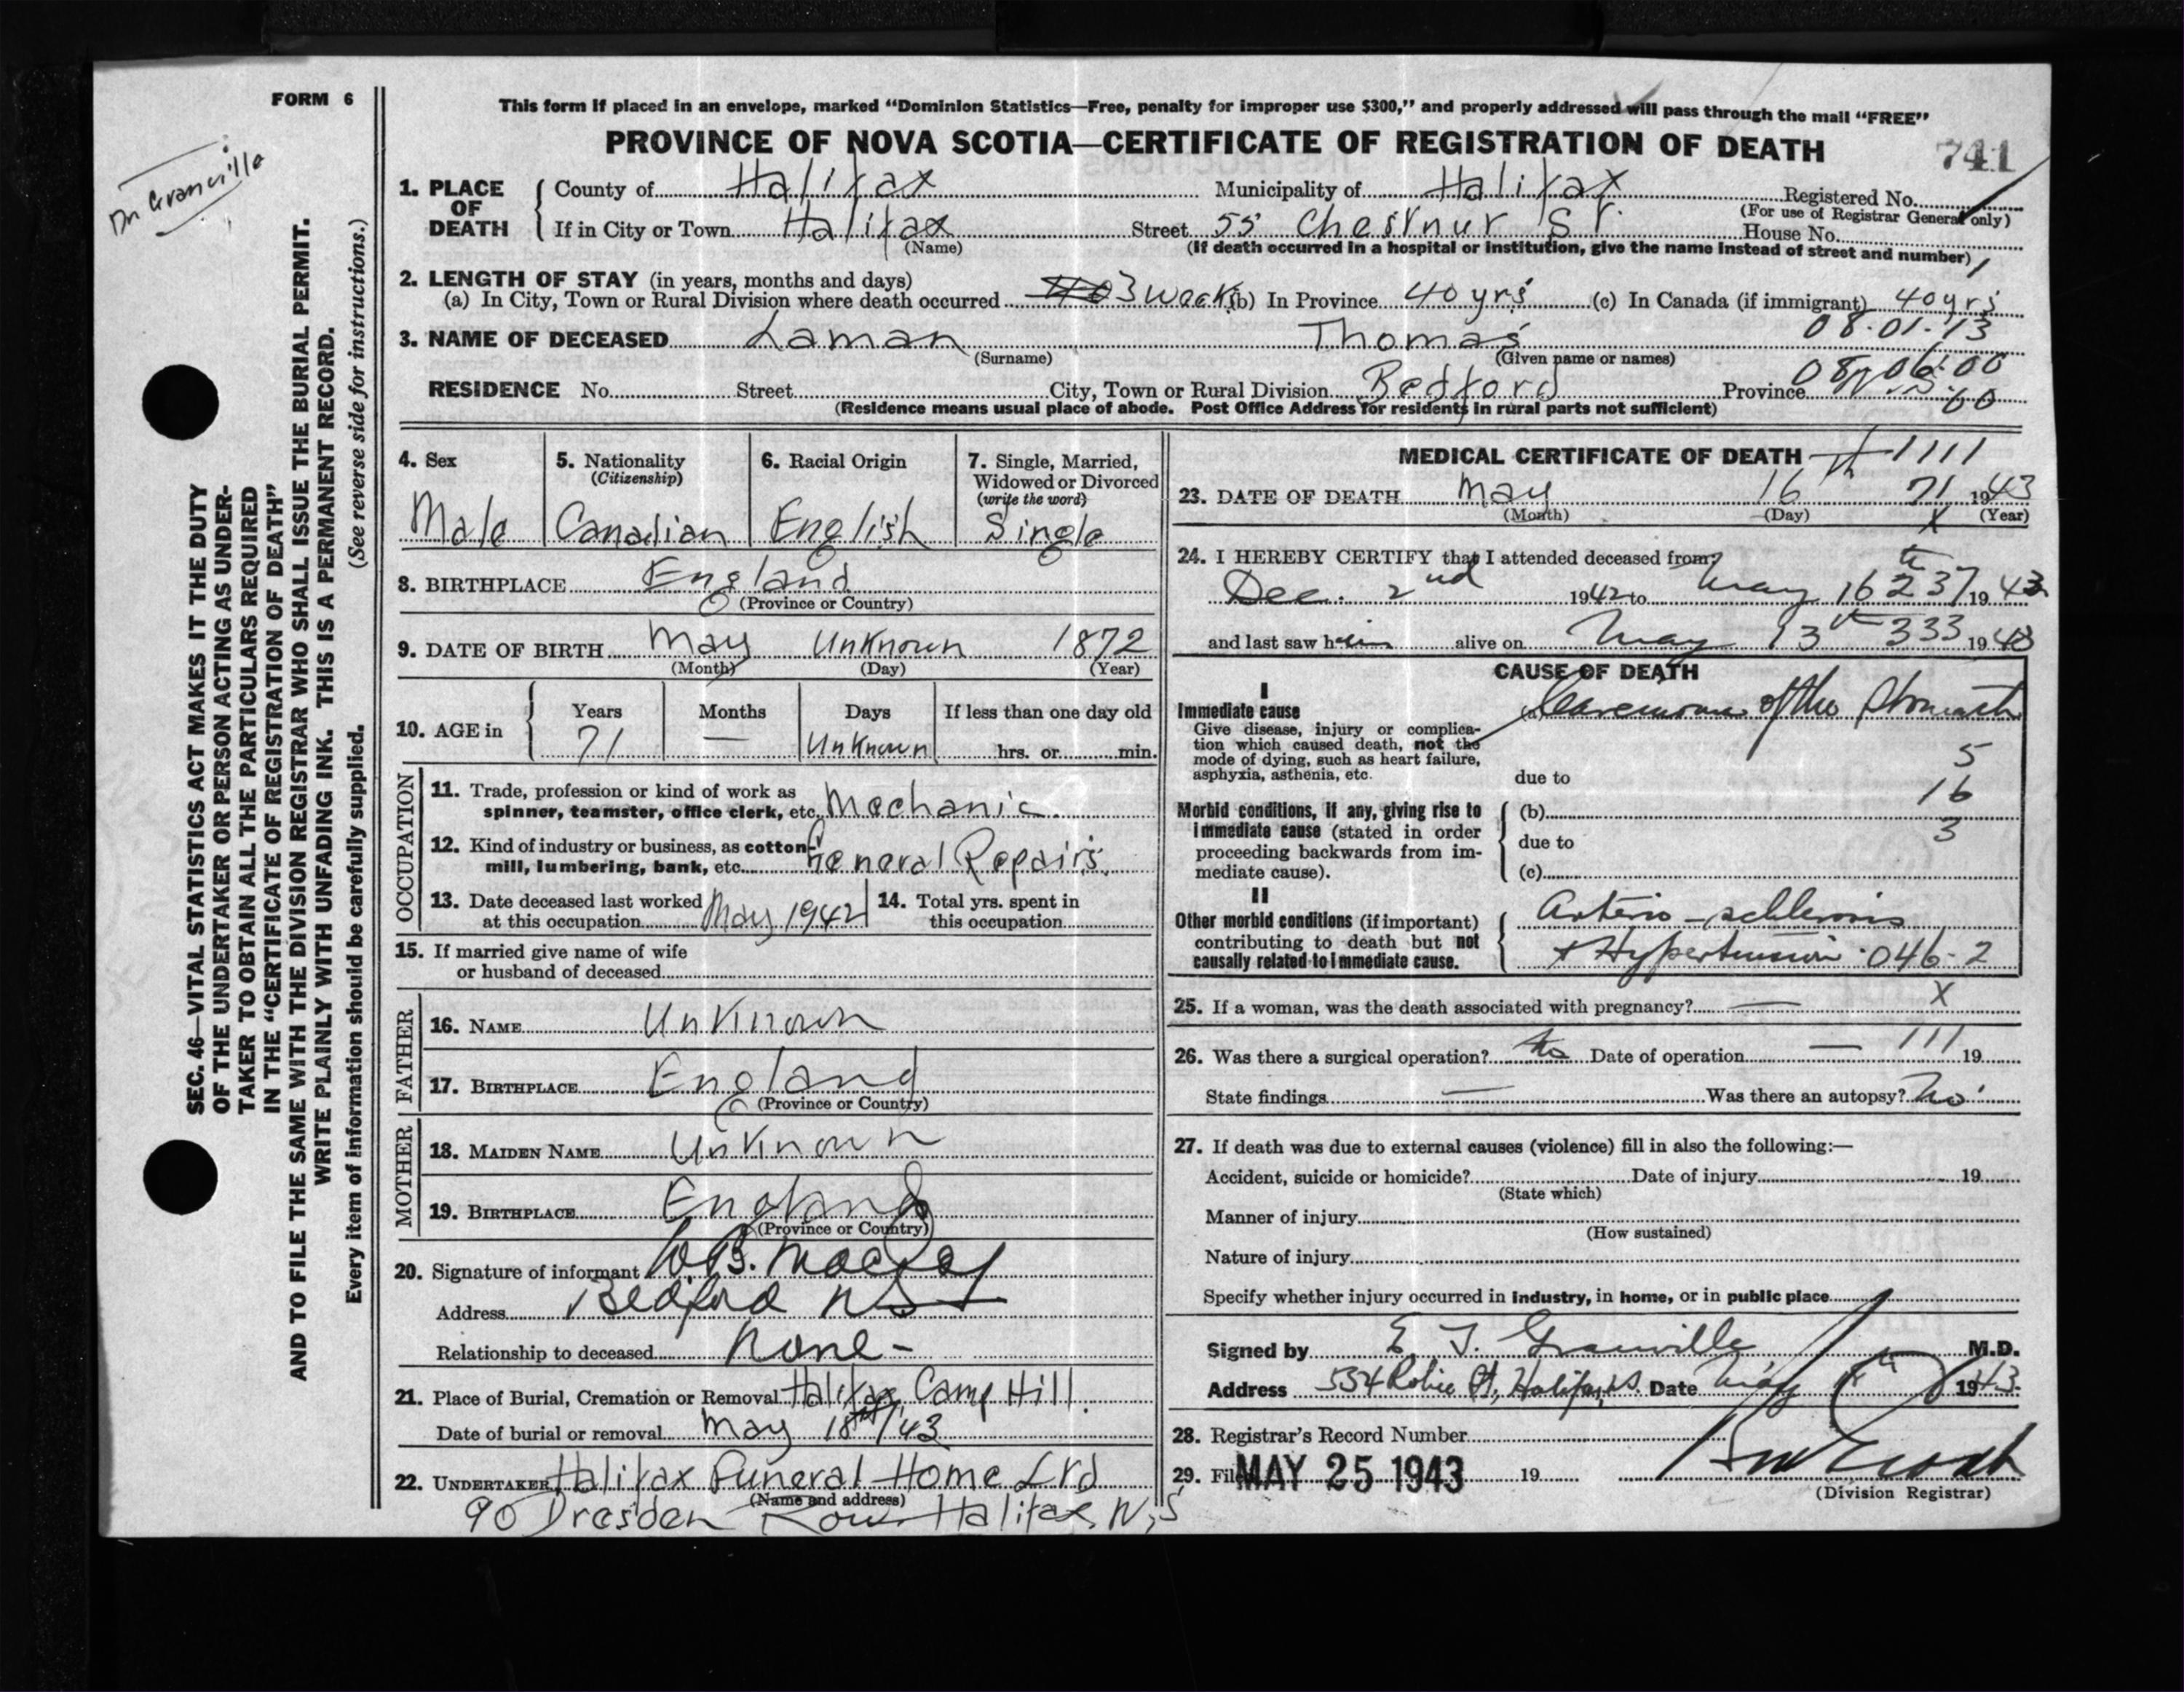 FORM 6
Dr Granville
SEC. 46—VITAL STATISTICS ACT MAKES IT THE DUTY
OF THE UNDERTAKER OR PERSON ACTING AS UNDER-
TAKER TO OBTAIN ALL THE PARTICULARS REQUIRED
IN THE "CERTIFICATE OF REGISTRATION OF DEATH"
AND TO FILE THE SAME WITH THE DIVISION REGISTRAR WHO SHALL ISSUE THE BURIAL PERMIT.
WRITE PLAINLY WITH UNFADING INK. THIS IS A PERMANENT RECORD.
Every item of information should be carefully supplied. (See reverse side for instructions.)
This form if placed in an envelope, marked "Dominion Statistics—Free, penalty for improper use $300," and properly addressed will pass through the mail "FREE"
PROVINCE OF NOVA SCOTIA—CERTIFICATE OF REGISTRATION OF DEATH 741
1. PLACE OF DEATH County of Halifax Municipality of Halifax Registered No.
(For use of Registrar General only)
If in City or Town Halifax Street 55 Chestnut St. House No.
(Name) (If death occurred in a hospital or institution, give the name instead of street and number)
2. LENGTH OF STAY (in years, months and days)
(a) In City, Town or Rural Division where death occurred 3 weeks (b) In Province 40 yrs (c) In Canada (if immigrant) 40 yrs
3. NAME OF DECEASED Laman Thomas 08.01.13
(Surname) (Given name or names)
08 06.00
RESIDENCE No. Street City, Town or Rural Division Bedford Province N.S. 60
(Residence means usual place of abode. Post Office Address for residents in rural parts not sufficient)
4. Sex 5. Nationality 6. Racial Origin 7. Single, Married,
(Citizenship) Widowed or Divorced
(write the word)
Male Canadian English Single
8. BIRTHPLACE England
(Province or Country)
9. DATE OF BIRTH May Unknown 1872
(Month) (Day) (Year)
10. AGE in Years Months Days If less than one day old
71 — Unknown hrs. or min.
OCCUPATION
11. Trade, profession or kind of work as
spinner, teamster, office clerk, etc. Mechanic
12. Kind of industry or business, as cotton
mill, lumbering, bank, etc. General Repairs
13. Date deceased last worked
at this occupation May 1942
14. Total yrs. spent in
this occupation
15. If married give name of wife
or husband of deceased
FATHER
16. NAME Unknown
17. BIRTHPLACE England
(Province or Country)
MOTHER
18. MAIDEN NAME Unknown
19. BIRTHPLACE England
(Province or Country)
20. Signature of informant W.B.
Address Bedford NS
Relationship to deceased None -
21. Place of Burial, Cremation or Removal Halifax, Camp Hill.
Date of burial or removal May 18th/43
22. UNDERTAKER Halifax Funeral Home Ltd
(Name and address)
90 Dresden Row Halifax, N.S
MEDICAL CERTIFICATE OF DEATH 1111
23. DATE OF DEATH May 16th 71 1943
(Month) (Day) (Year)
X
24. I HEREBY CERTIFY that I attended deceased from:
Dec. 2nd 1942 to May 16th 237 1943
and last saw him alive on May 13th 333 1943
CAUSE OF DEATH
I
Immediate cause
Give disease, injury or complica-
tion which caused death, not the
mode of dying, such as heart failure,
asphyxia, asthenia, etc.
(a) Carcinoma of the Stomach
5
due to
16
Morbid conditions, if any, giving rise to
immediate cause (stated in order
proceeding backwards from im-
mediate cause).
(b)
3
due to
(c)
II
Other morbid conditions (if important)
contributing to death but not
causally related to immediate cause.
Arterio-schlerosis
+ Hypertension 046-2
25. If a woman, was the death associated with pregnancy? — X
26. Was there a surgical operation? No Date of operation — 111 19
State findings — Was there an autopsy? No
27. If death was due to external causes (violence) fill in also the following:—
Accident, suicide or homicide? Date of injury 19
(State which)
Manner of injury
(How sustained)
Nature of injury
Specify whether injury occurred in industry, in home, or in public place
Signed by E. T. Granville M.D.
Address 554 Robie St, Halifax, N.S. Date May 1943.
28. Registrar's Record Number
29. Filed MAY 25 1943 19
(Division Registrar)